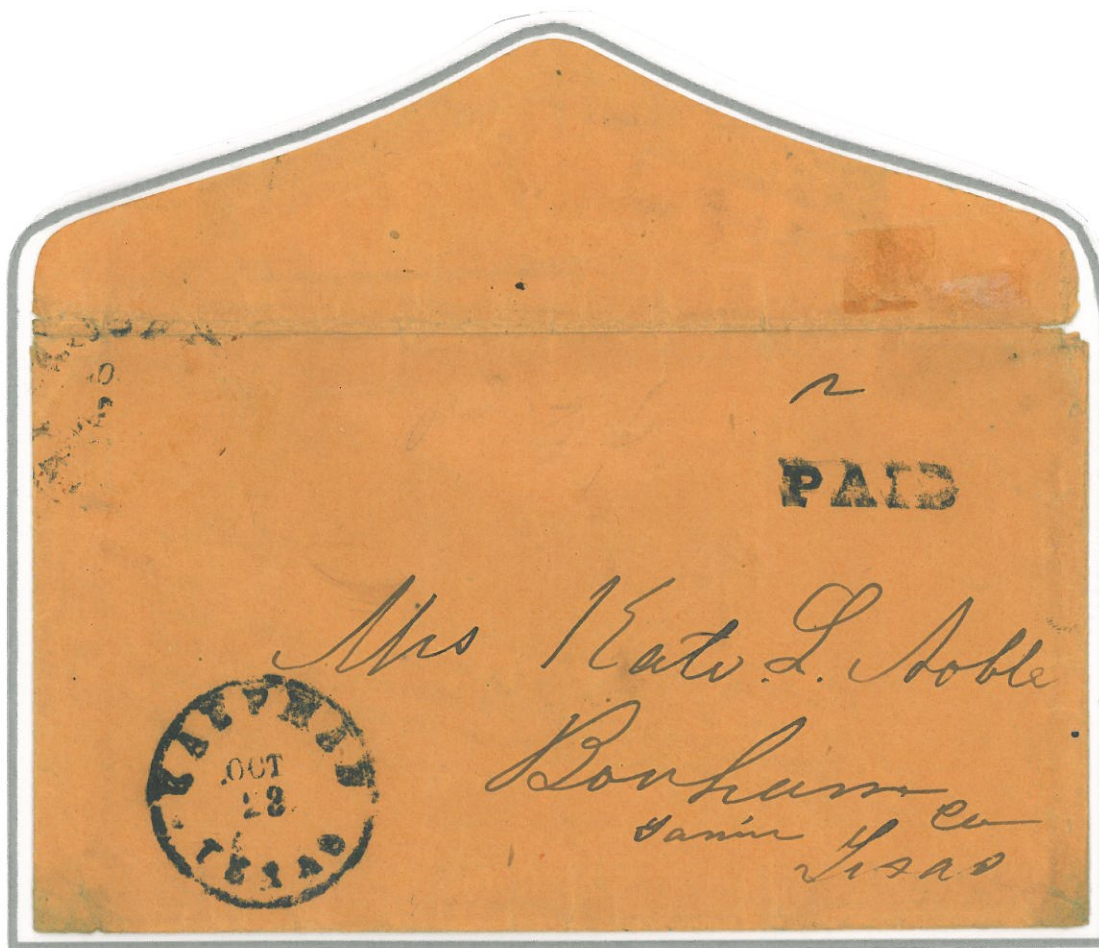 PAID
Mrs Kate L. Noble
Bonham
Fanin Co
Texas
KAUFMAN
OCT
TEXAS